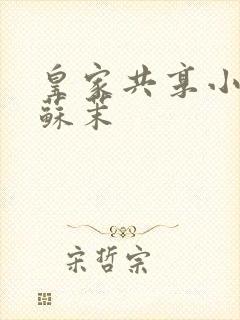 皇家共享小
蘇茉
宋哲宗